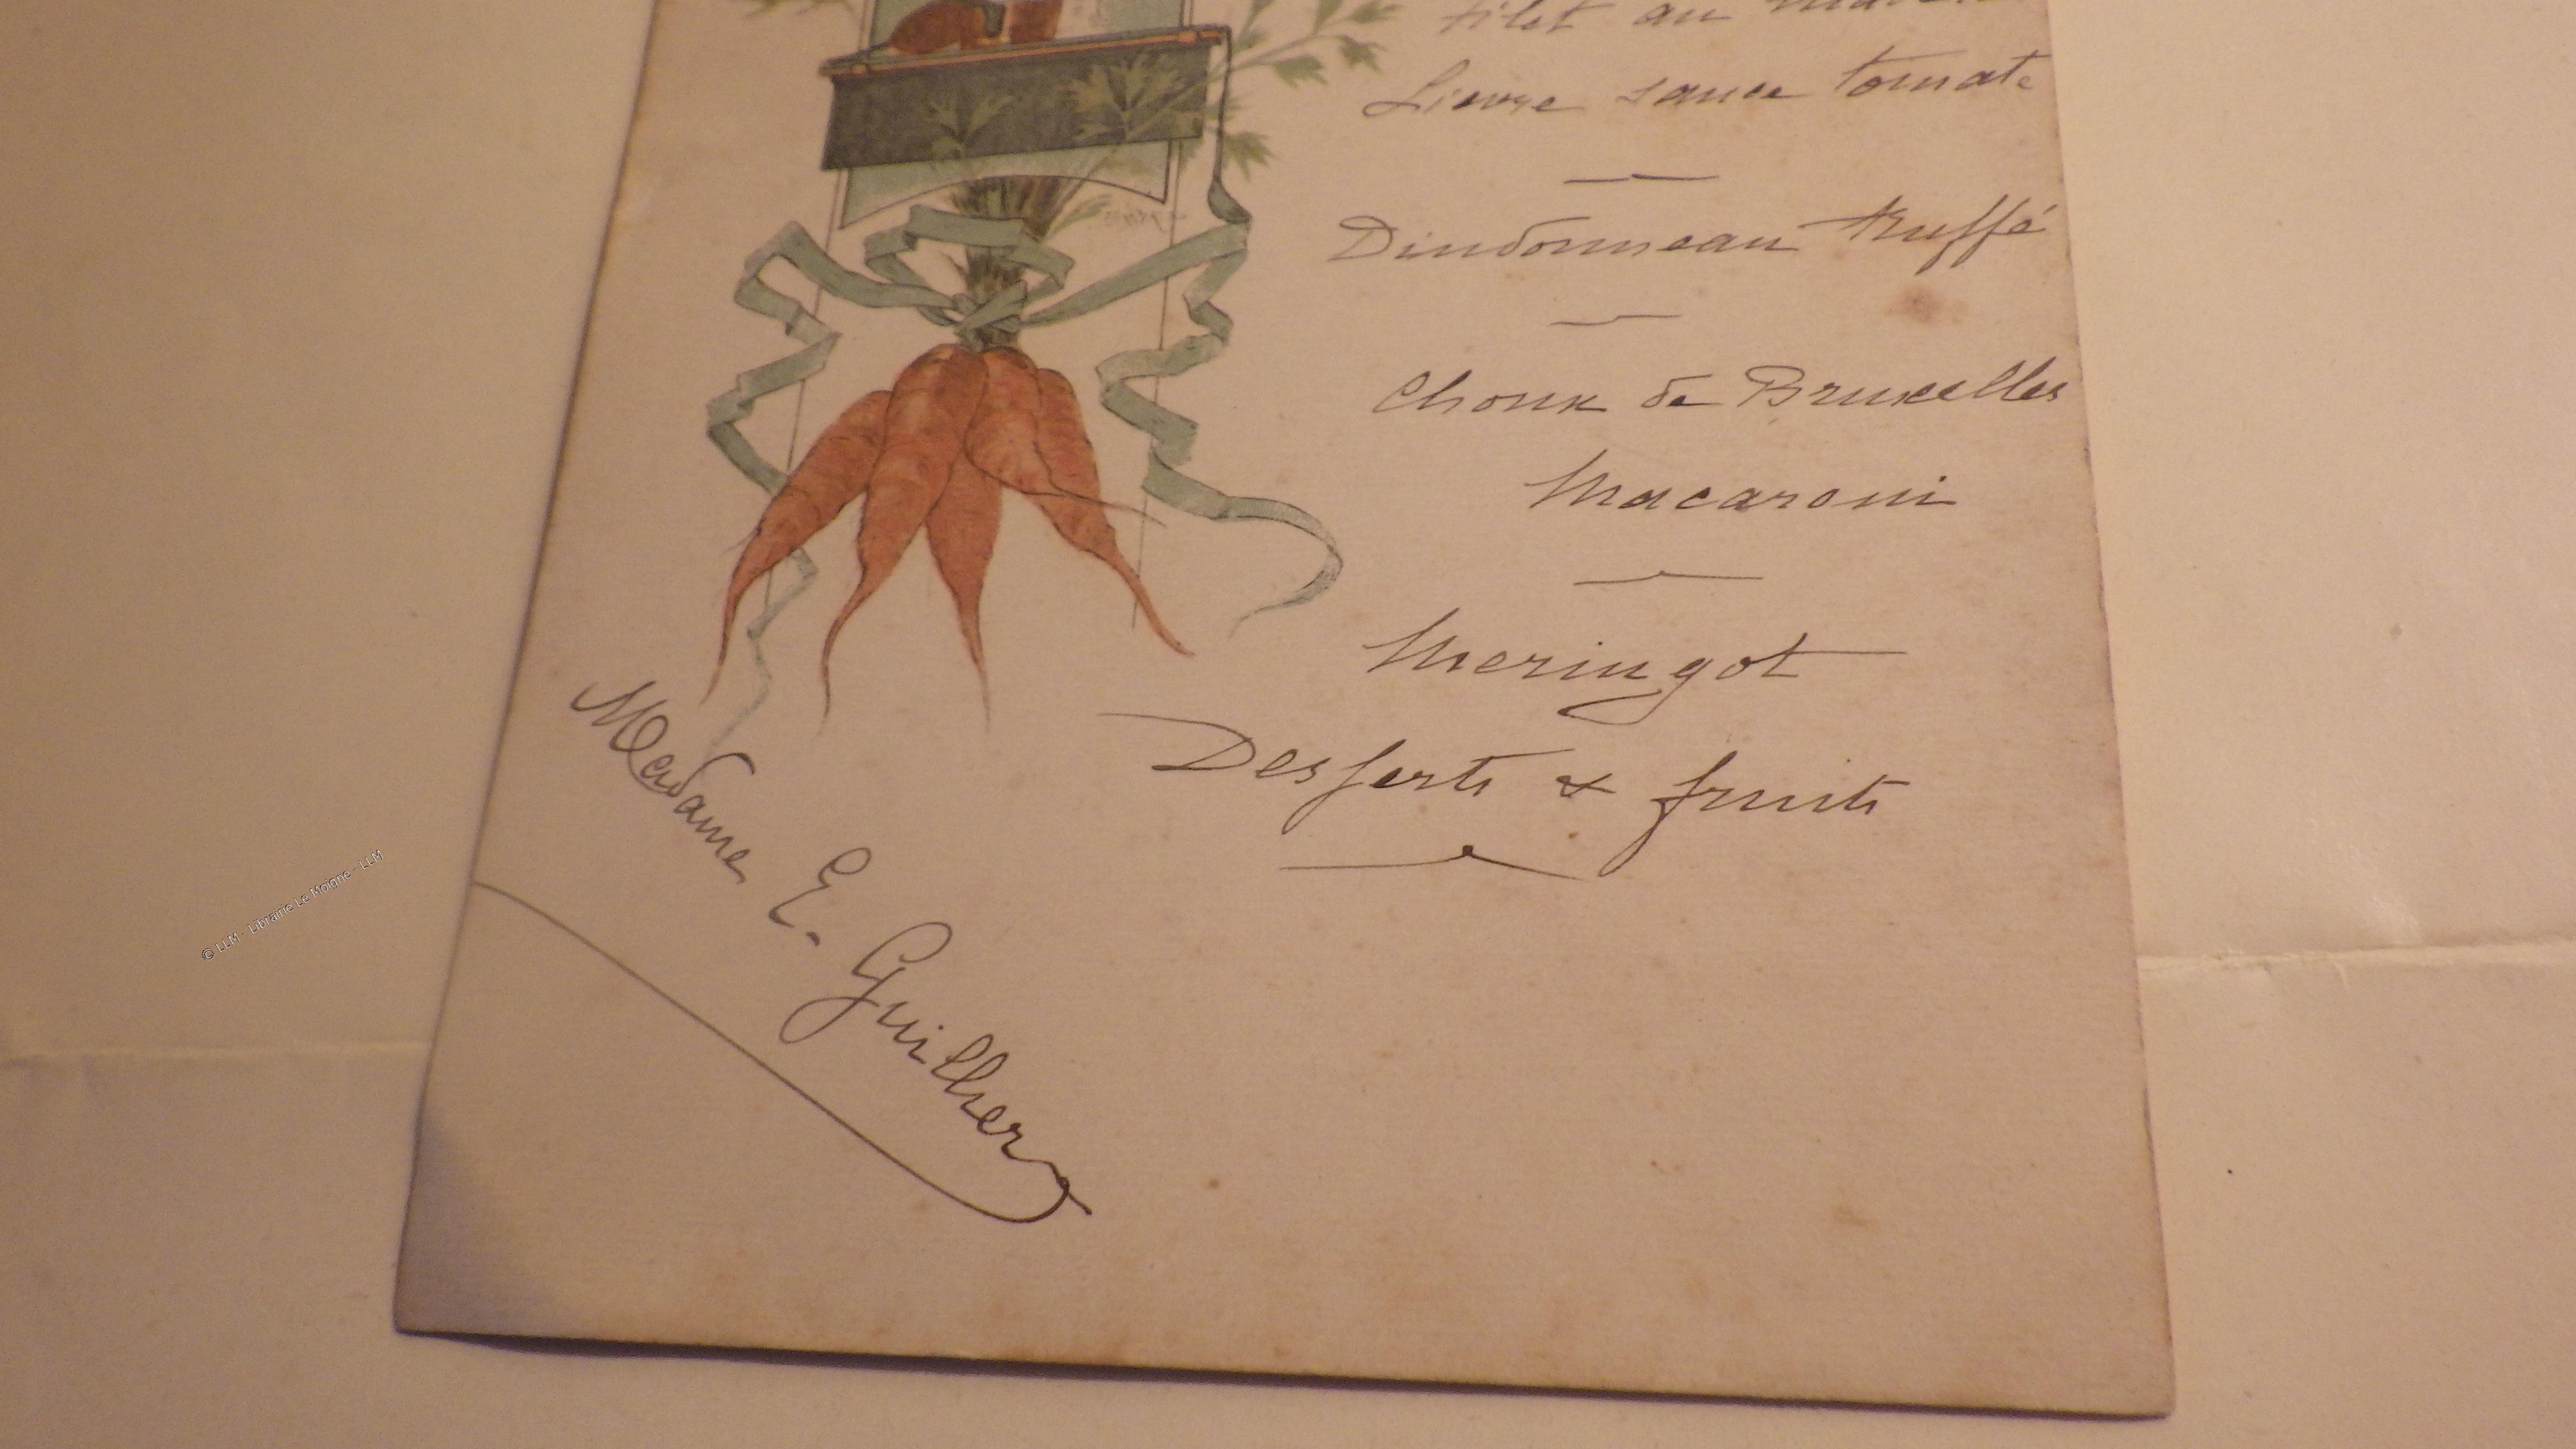 filet au
Lievre sauce tomate
Dindonneau truffé
Choux de Bruxelles
Macaroni
Meringot
Desserts & fruits
Madame E. Guillery
© LLM - Librairie Le Moigne - LLM